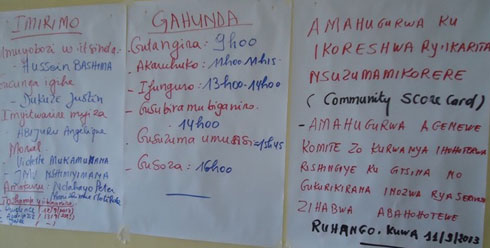 IMIRIMO
Umuyobozi w'itsinda:
- Hussein BASHIMA
- Dukuze Justin
Imyitwarire myiza
- ABIJURU Angelique
Moral
- Violette MUKAMUMANA
- JMV NSHIMYIMANA
GAHUNDA
- Gutangira: 9h00
- Akaruhuko: 11h00-11h15.
- Ifunguro: 13h00-14h00
- Gusubira mu biganiro:
14h00
- Gusuzuma umunsi = 15h45
- Gusoza: 16h00
AMAHUGURWA KU
IKORESHWA RY'IKARITA
NSUZUMAMIKORERE
(Community Score Card)
- AMAHUGURWA AGENEWE
KOMITE ZO KURWANYA IHOHOTERWA
RISHINGIYE KU GITSINA NO
GUKURIKIRANA IMOZWA RYA SERIVISI
ZIHABWA ABAHOHOTEWE
RUHANGO. KUWA 11/9/2013